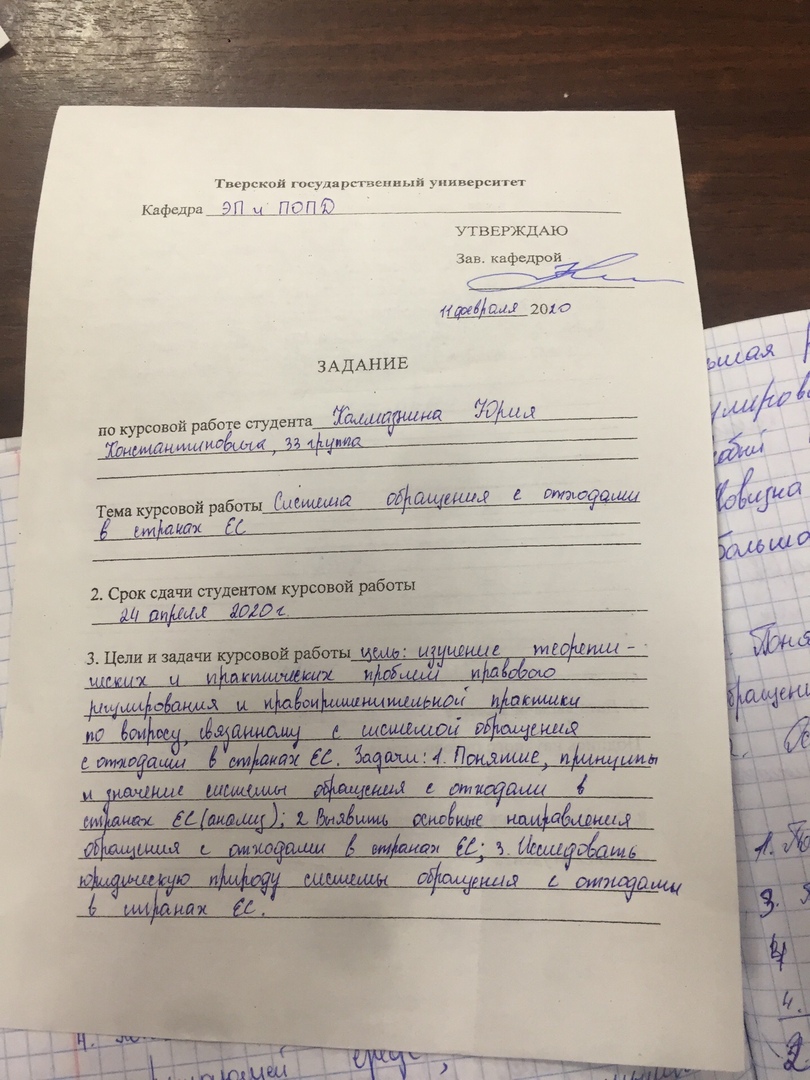 Тверской государственный университет
Кафедра ЭП и ПОПД
УТВЕРЖДАЮ
Зав. кафедрой
11 февраля 2020
ЗАДАНИЕ
по курсовой работе студента Калмазнина Юрия
Константиновича, 33 группа
Тема курсовой работы Система обращения с отходами
в странах ЕС
2. Срок сдачи студентом курсовой работы
24 апреля 2020 г.
3. Цели и задачи курсовой работы цель: изучение теорети-
ческих и практических проблем правового
регулирования и правоприменительной практики
по вопросу, связанному с системой обращения
с отходами в странах ЕС. Задачи: 1. Понятие, принципы
и значение системы обращения с отходами в
странах ЕС (анализ); 2 Выявить основные направления
обращения с отходами в странах ЕС; 3. Исследовать
юридическую природу системы обращения с отходами
в странах ЕС.